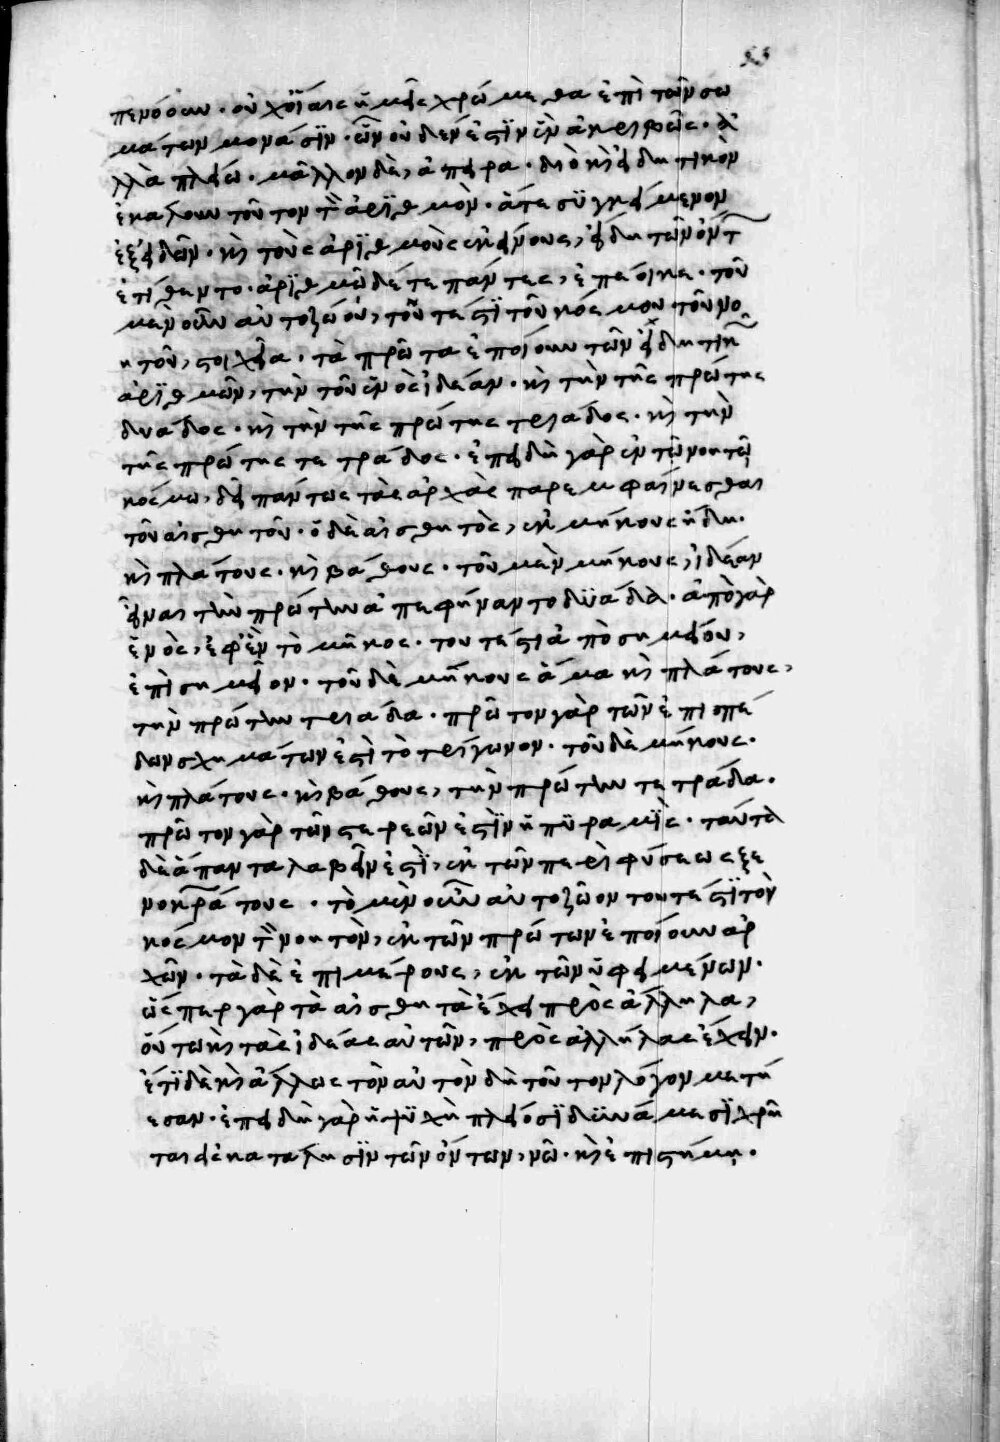 περόσιν · οὐχ οἵαις ἡμεῖς χρώμεθα ἐπὶ τῶν σω
μάτων μονάσιν · ὧν οὐδεν ἐστὶν ἓν ἀκριβῶς · ἀ
λλὰ πλείω · μᾶλλον δὲ, ἄπειρα · διὸ κỳ εἰδητικὸν
ἐκάλουν τοῦτον τὸν ἀριθμὸν · ἅτε συγκείμενον
ἐξ εἰδῶν · κỳ τοὺς ἀριθμοὺς ἐκείνους, εἴδη τῶν ὄντων
ἐτίθεντο · ἀριθμῶ δέ τε πάντες, ἐπέοικε · τοῦ
μὲν οὖν αὐτοζώου, τουτέστι τοῦ κόσμου τοῦ νο
ητοῦ, στοιχεῖα · τὰ πρῶτα ἐποίουν τῶν εἰδητικῶν
ἀριθμῶν, τὴν τοῦ ἑνὸς ἰδέαν · κỳ τὴν τῆς πρώτης
δυάδος · κỳ τὴν τῆς πρώτης τριάδος · κỳ τὴν
τῆς πρώτης τετράδος · ἐπειδὴ γὰρ ἐν τῶ νοητῶ
κόσμω, δεῖ πάντως τὰς ἀρχὰς παρεμφαίνεσθαι
τοῦ αἰσθητοῦ · ὁ δὲ αἰσθητὸς, ἐκ μήκους ἤδη ·
κỳ πλάτους · κỳ βάθους · τοῦ μὲν μήκους, ἰδέαν
εἶναι τὴν πρώτην ἀπεφήναντο δυάδα · ἀπὸ γὰρ
ἑνὸς, ἐφ' ἓν τὸ μῆκος · τουτέστι ἀπὸ σημείου,
ἐπὶ σημεῖον · τοῦ δὲ μήκους ἅμα κỳ πλάτους,
τὴν πρώτην τριάδα · πρῶτον γὰρ τῶν ἐπιπέ
δων σχημάτων ἐστὶ τὸ τρίγωνον · τοῦ δὲ μήκους ·
κỳ πλάτους · κỳ βάθους, τὴν πρώτην τετράδα ·
πρῶτον γὰρ τῶν στερεῶν ἐστὶν ἡ πυραμὶς · ταῦτα
δὲ ἅπαντα λαβεῖν ἐστὶ, ἐκ τῶν περὶ φύσεως ξε
νοκράτους · τὸ μὲν οὖν αὐτοζῶον τουτέστι τὸν
κόσμον τὸν νοητὸν, ἐκ τῶν πρώτων ἐποίουν ἀρ
χῶν · τὰ δὲ ἐπιμέρους, ἐκ τῶν ὑφειμένων ·
ὥσπερ γὰρ τὰ αἰσθητὰ ἔχει πρὸς ἄλληλα,
οὕτω κỳ τὰς ἰδέας αὐτῶν, πρὸς ἀλλήλας ἔχειν ·
ἔτι δὲ κỳ ἄλλως τὸν αὐτὸν δὴ τοῦτον λόγον μετή
εσαν · ἐπειδὴ γὰρ ἡ ψυχὴ πλείοσι δυνάμεσι χρῆ
ται εἰς κατάλησιν τῶν ὄντων, νῶ · κỳ ἐπιστήμη ·